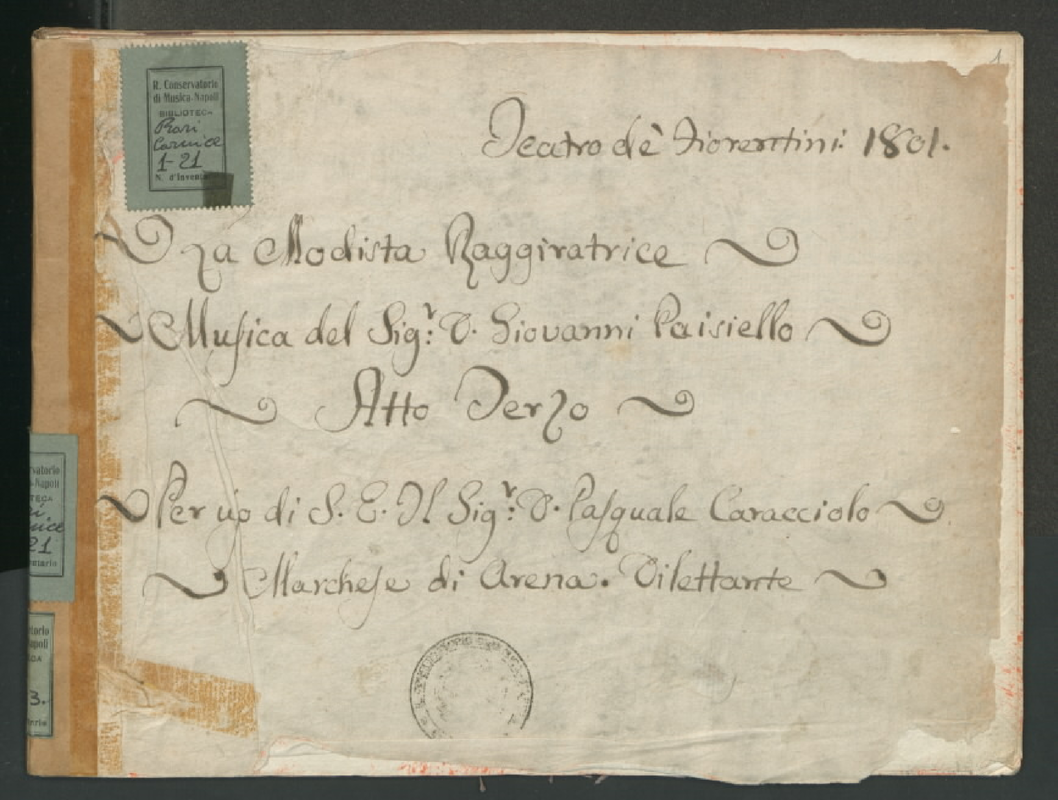 R. Conservatorio
di Musica-Napoli
BIBLIOTECA
Rari
Cornice
1-21
N. d'Inventario
1
Teatro de' Fiorentini 1801.
La Modista Raggiratrice
Musica del Sigr: D. Giovanni Paisiello
Atto Terzo
Per uso di S. E. Il Sigr: D. Pasquale Caracciolo
Marchese di Arena. Dilettante
vatorio
-Napoli
TECA
nice
21
ventario
torio
apoli
CA
3.